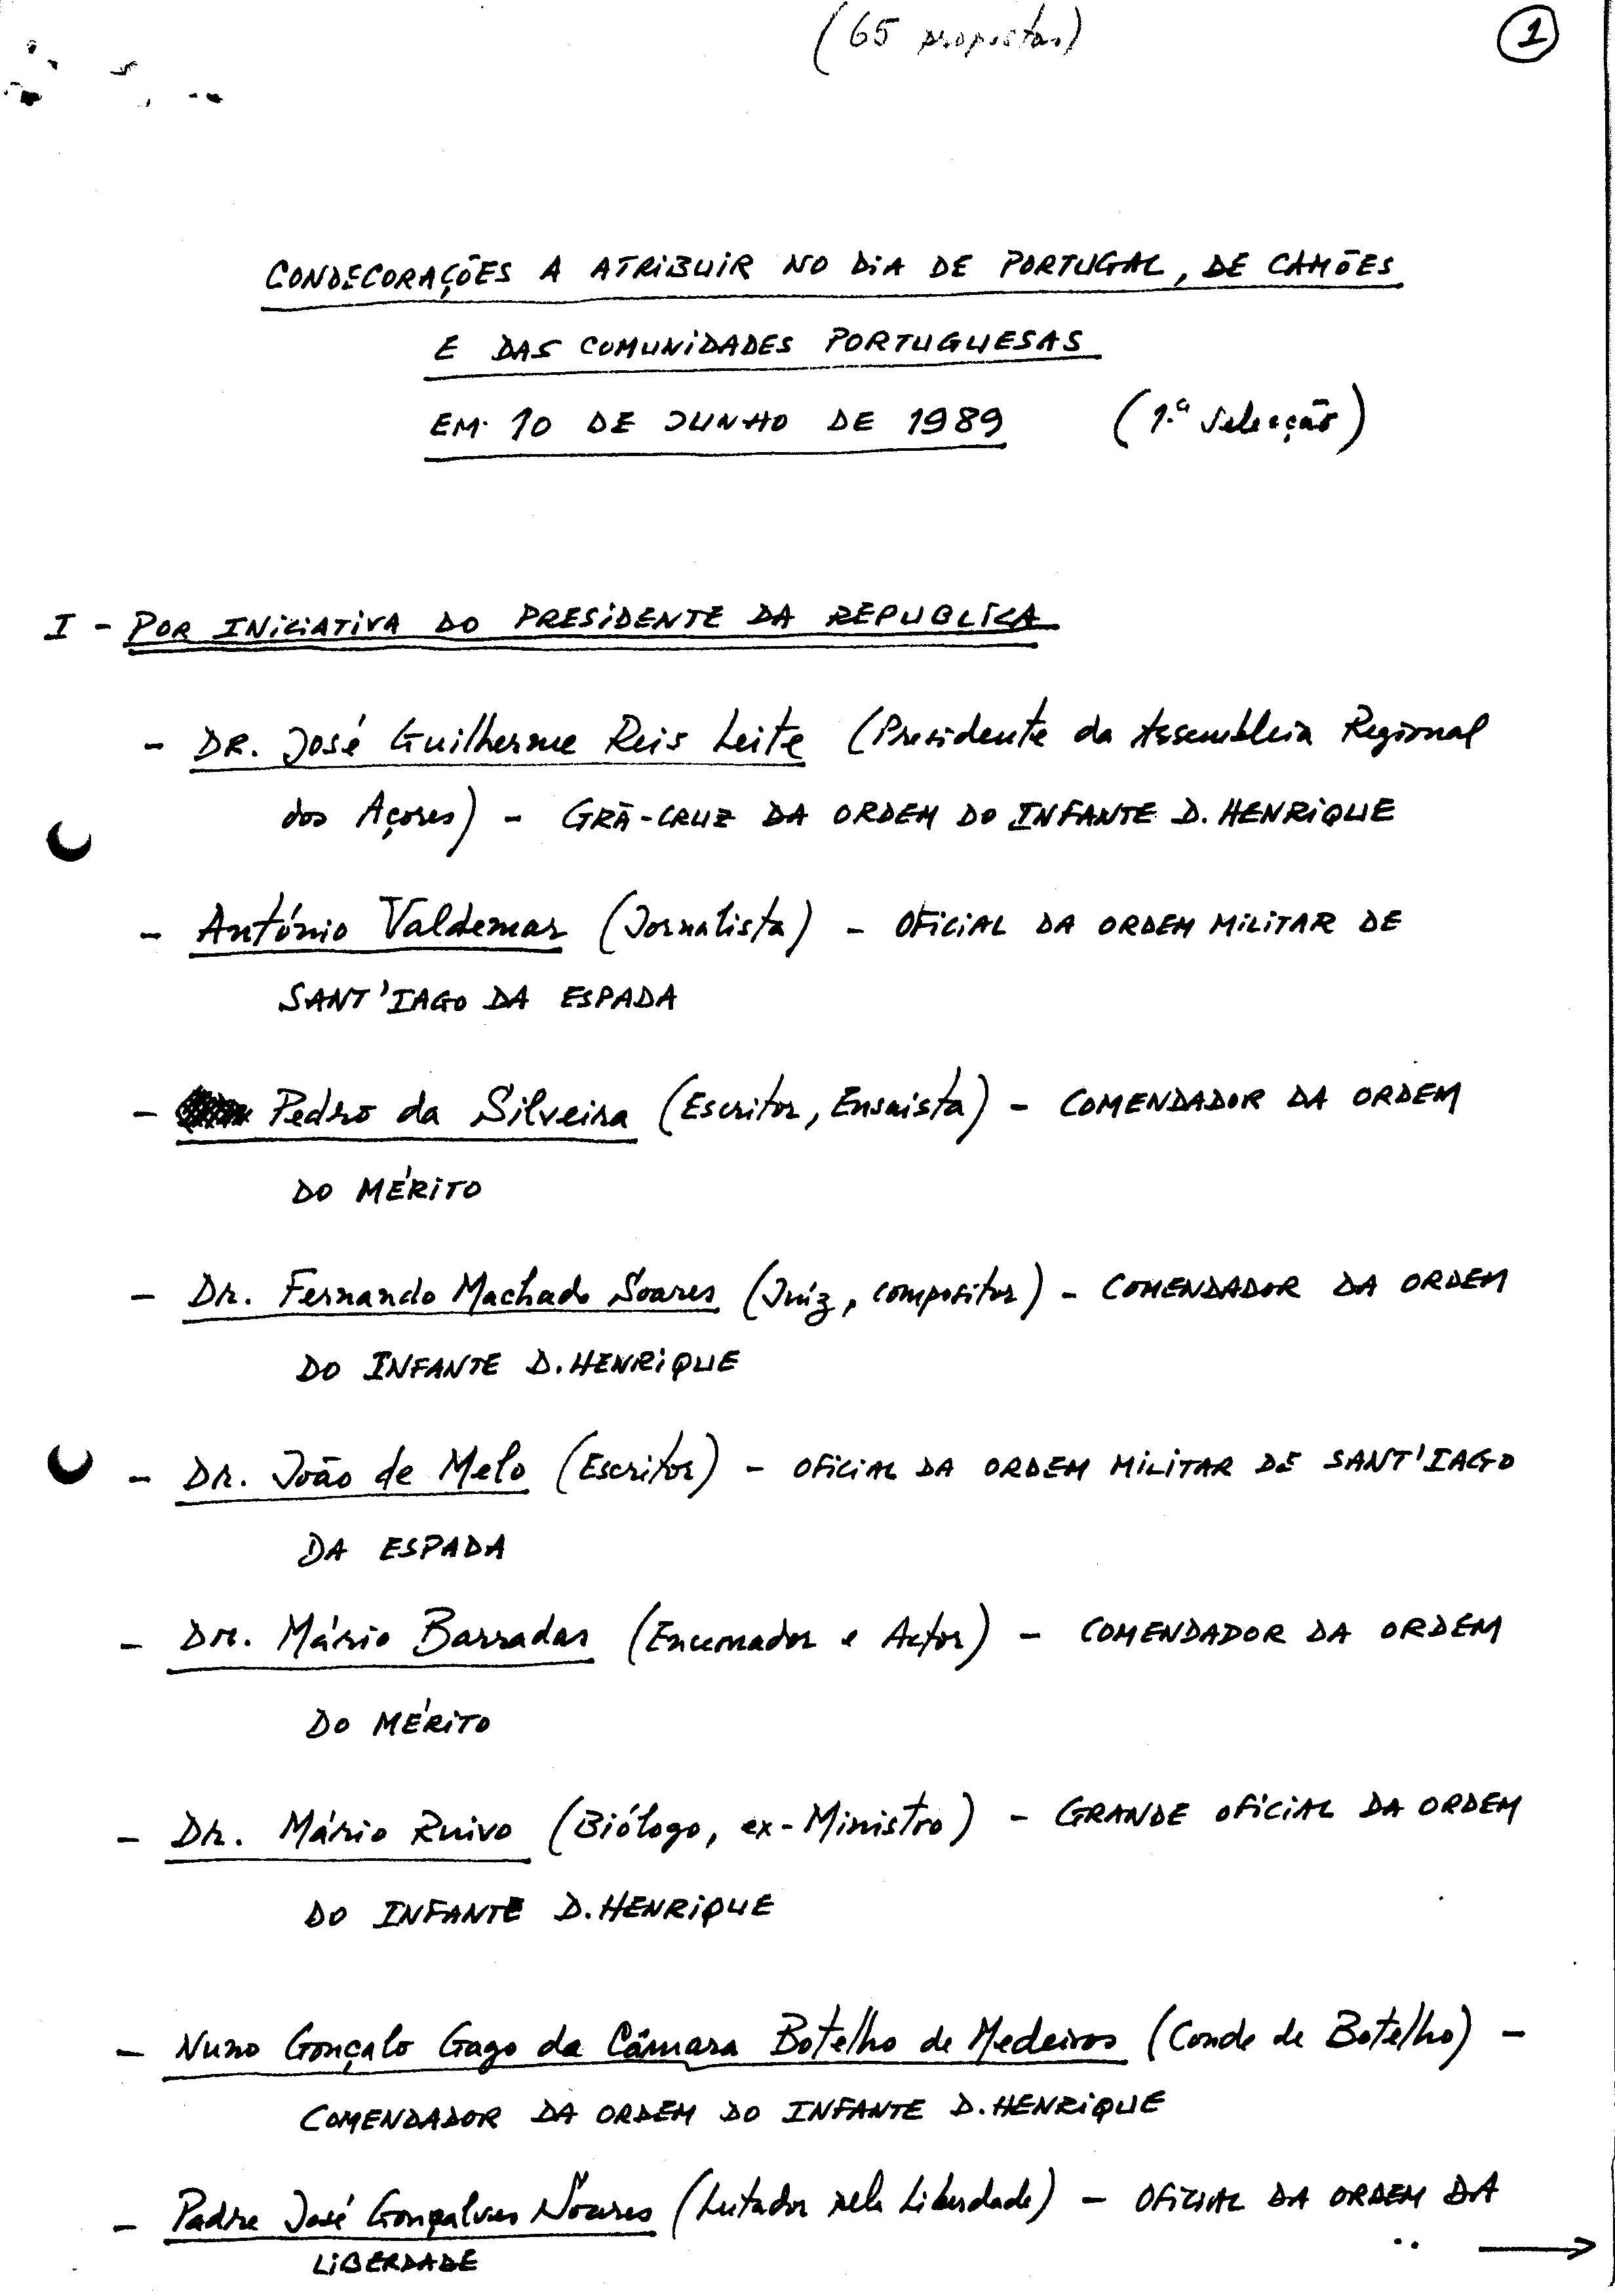 (65 propostas)
1
CONDECORAÇÕES A ATRIBUIR NO DIA DE PORTUGAL, DE CAMÕES
E DAS COMUNIDADES PORTUGUESAS
EM 10 DE JUNHO DE 1989 (1.ª Selecção)
I - POR INICIATIVA DO PRESIDENTE DA REPUBLICA
- DR. José Guilherme Reis Leite (Presidente da Assembleia Regional
dos Açores) - GRÃ-CRUZ DA ORDEM DO INFANTE D. HENRIQUE
- António Valdemar (Jornalista) - OFICIAL DA ORDEM MILITAR DE
SANT'IAGO DA ESPADA
- Pedro da Silveira (Escritor, Ensaista) - COMENDADOR DA ORDEM
DO MÉRITO
- Dr. Fernando Machado Soares (Juíz, compositor) - COMENDADOR DA ORDEM
DO INFANTE D. HENRIQUE
- Dr. João de Melo (Escritor) - OFICIAL DA ORDEM MILITAR DE SANT'IAGO
DA ESPADA
- Dr. Mário Barradas (Encenador e Actor) - COMENDADOR DA ORDEM
DO MÉRITO
- Dr. Mário Ruivo (Biólogo, ex-Ministro) - GRANDE OFICIAL DA ORDEM
DO INFANTE D. HENRIQUE
- Nuno Gonçalo Gago da Câmara Botelho de Medeiros (Conde de Botelho) -
COMENDADOR DA ORDEM DO INFANTE D. HENRIQUE
- Padre José Gonçalves Soares (Lutador pela Liberdade) - OFICIAL DA ORDEM DA
LIBERDADE